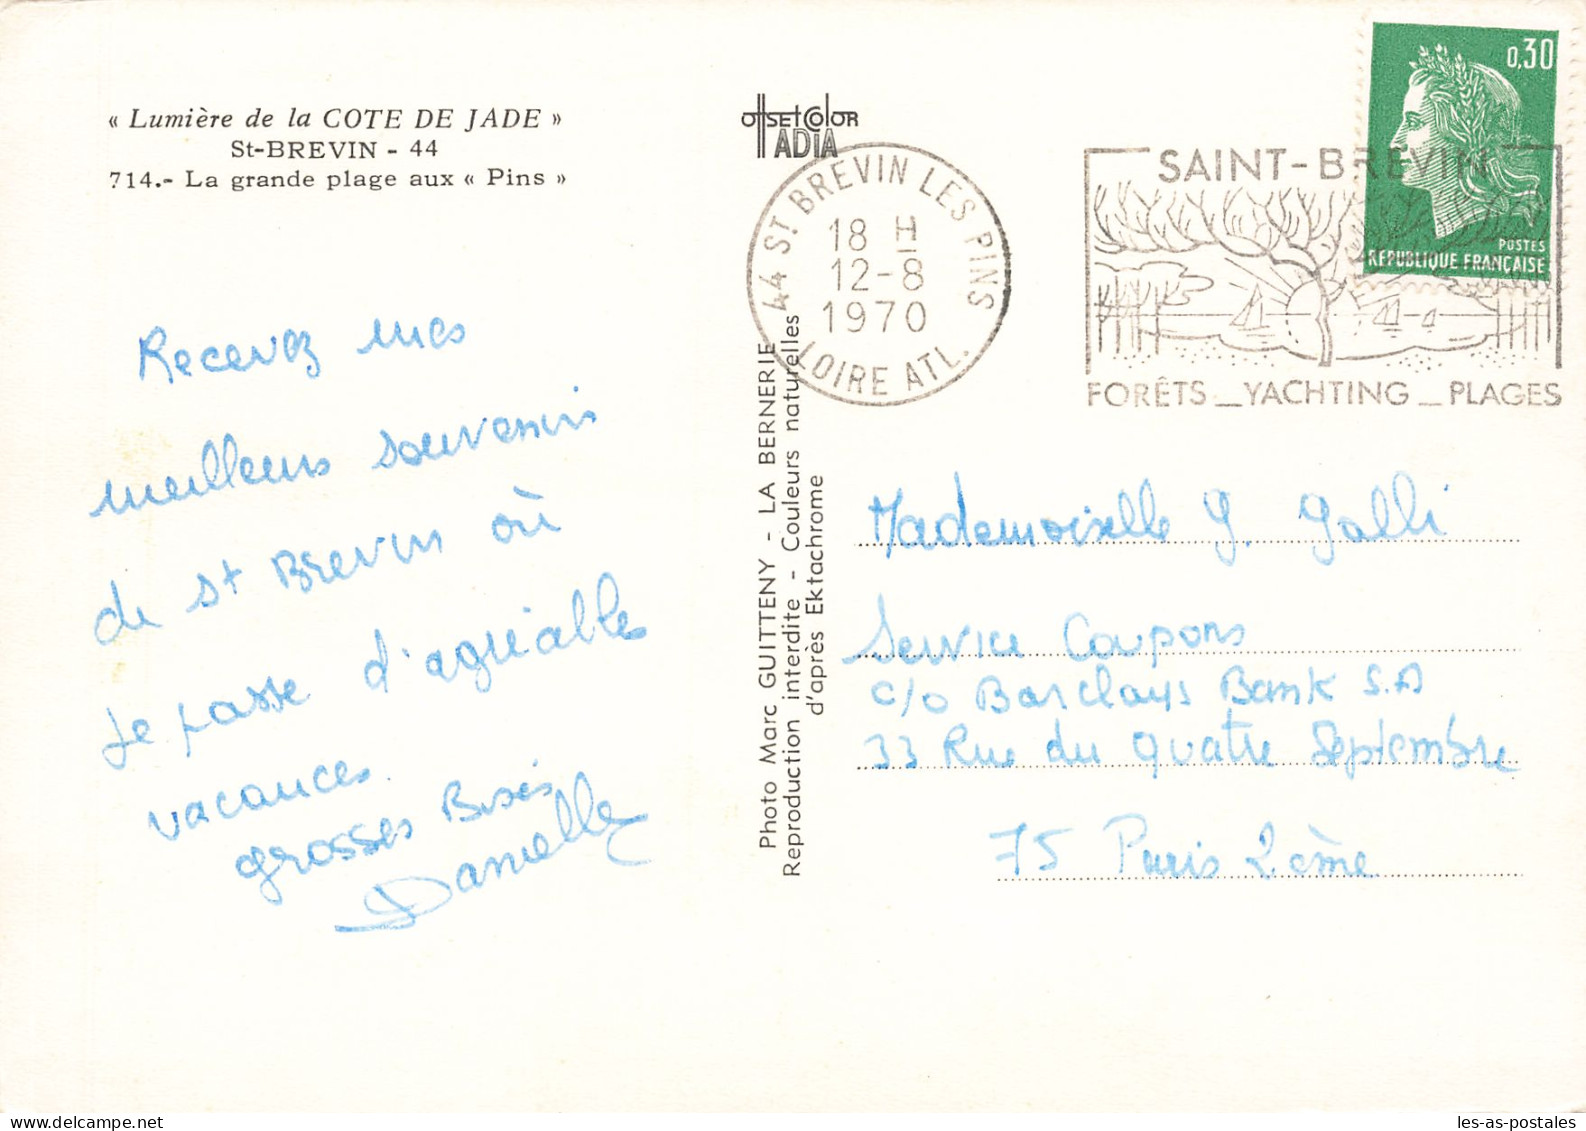 « Lumière de la COTE DE JADE »
St-BREVIN - 44
714.- La grande plage aux « Pins »
Recevez mes
meilleurs souvenirs
de St Brevin où
je passe d'agréables
vacances.
grosses Bises
Danielle
OffSEt COlOR
ADIA
44 ST BREVIN LES PINS
18 H
12-8
1970
LOIRE ATL.
SAINT-BREVIN
FORÊTS _ YACHTING _ PLAGES
0,30
POSTES
REPUBLIQUE FRANÇAISE
Photo Marc GUITTENY - LA BERNERIE
Reproduction interdite - Couleurs naturelles
d'après Ektachrome
Mademoiselle G. Galli
Service Coupons
c/o Barclays Bank S.A
33 Rue du Quatre Septembre
75 Paris 2ème
les-as-postales
delcampe.net